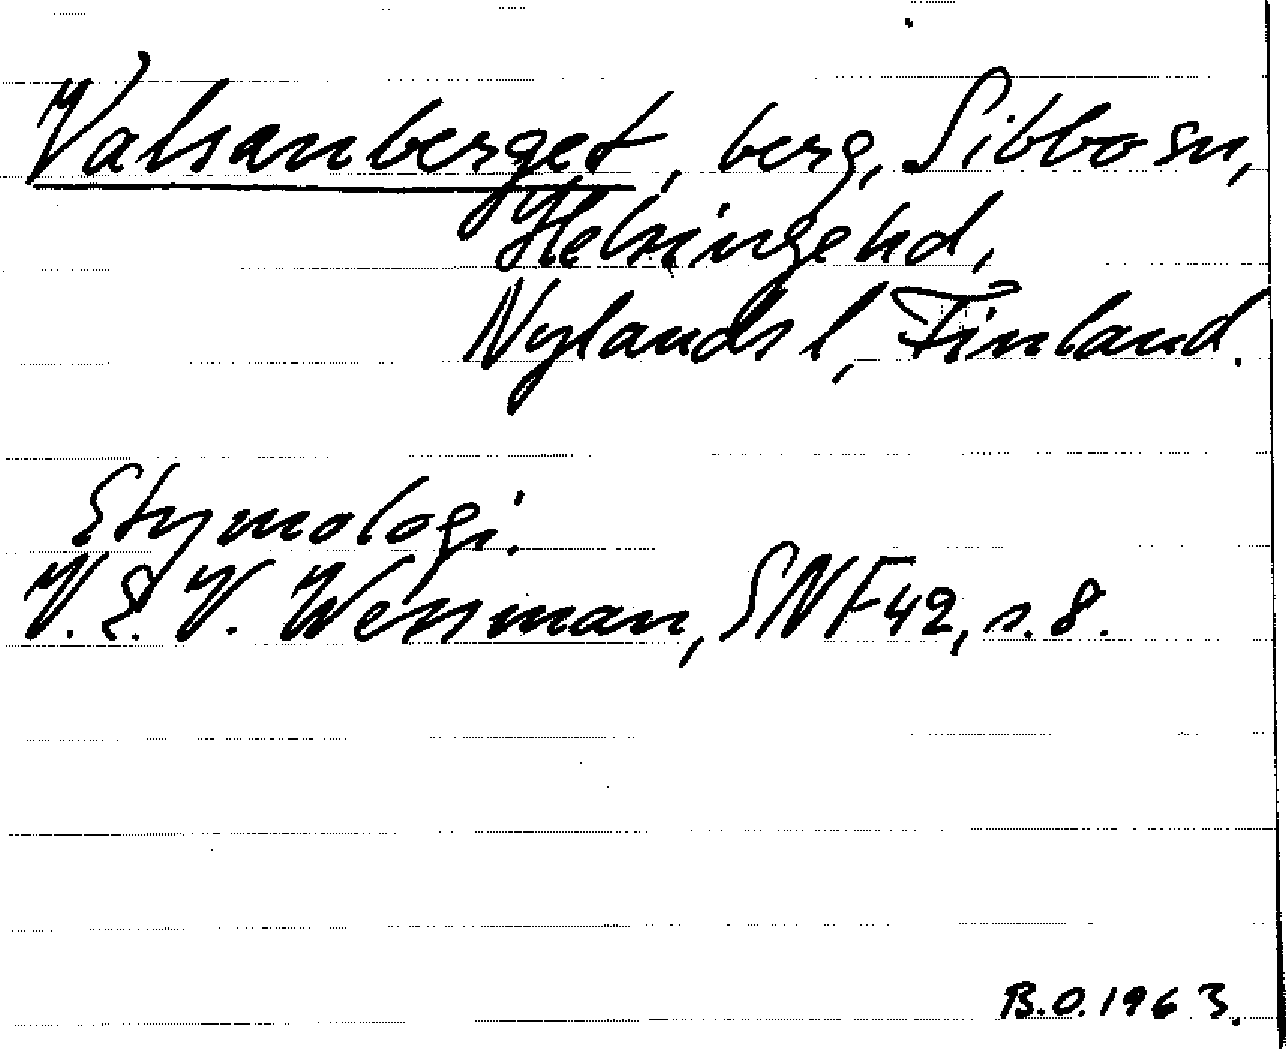 Valsanberget, berg, Sibbo sn,
Helsinge hd,
Nylands l, Finland.
Etymologi.
V. E. V. Wessman, SNF 42, s. 8.
B.O. 1963.